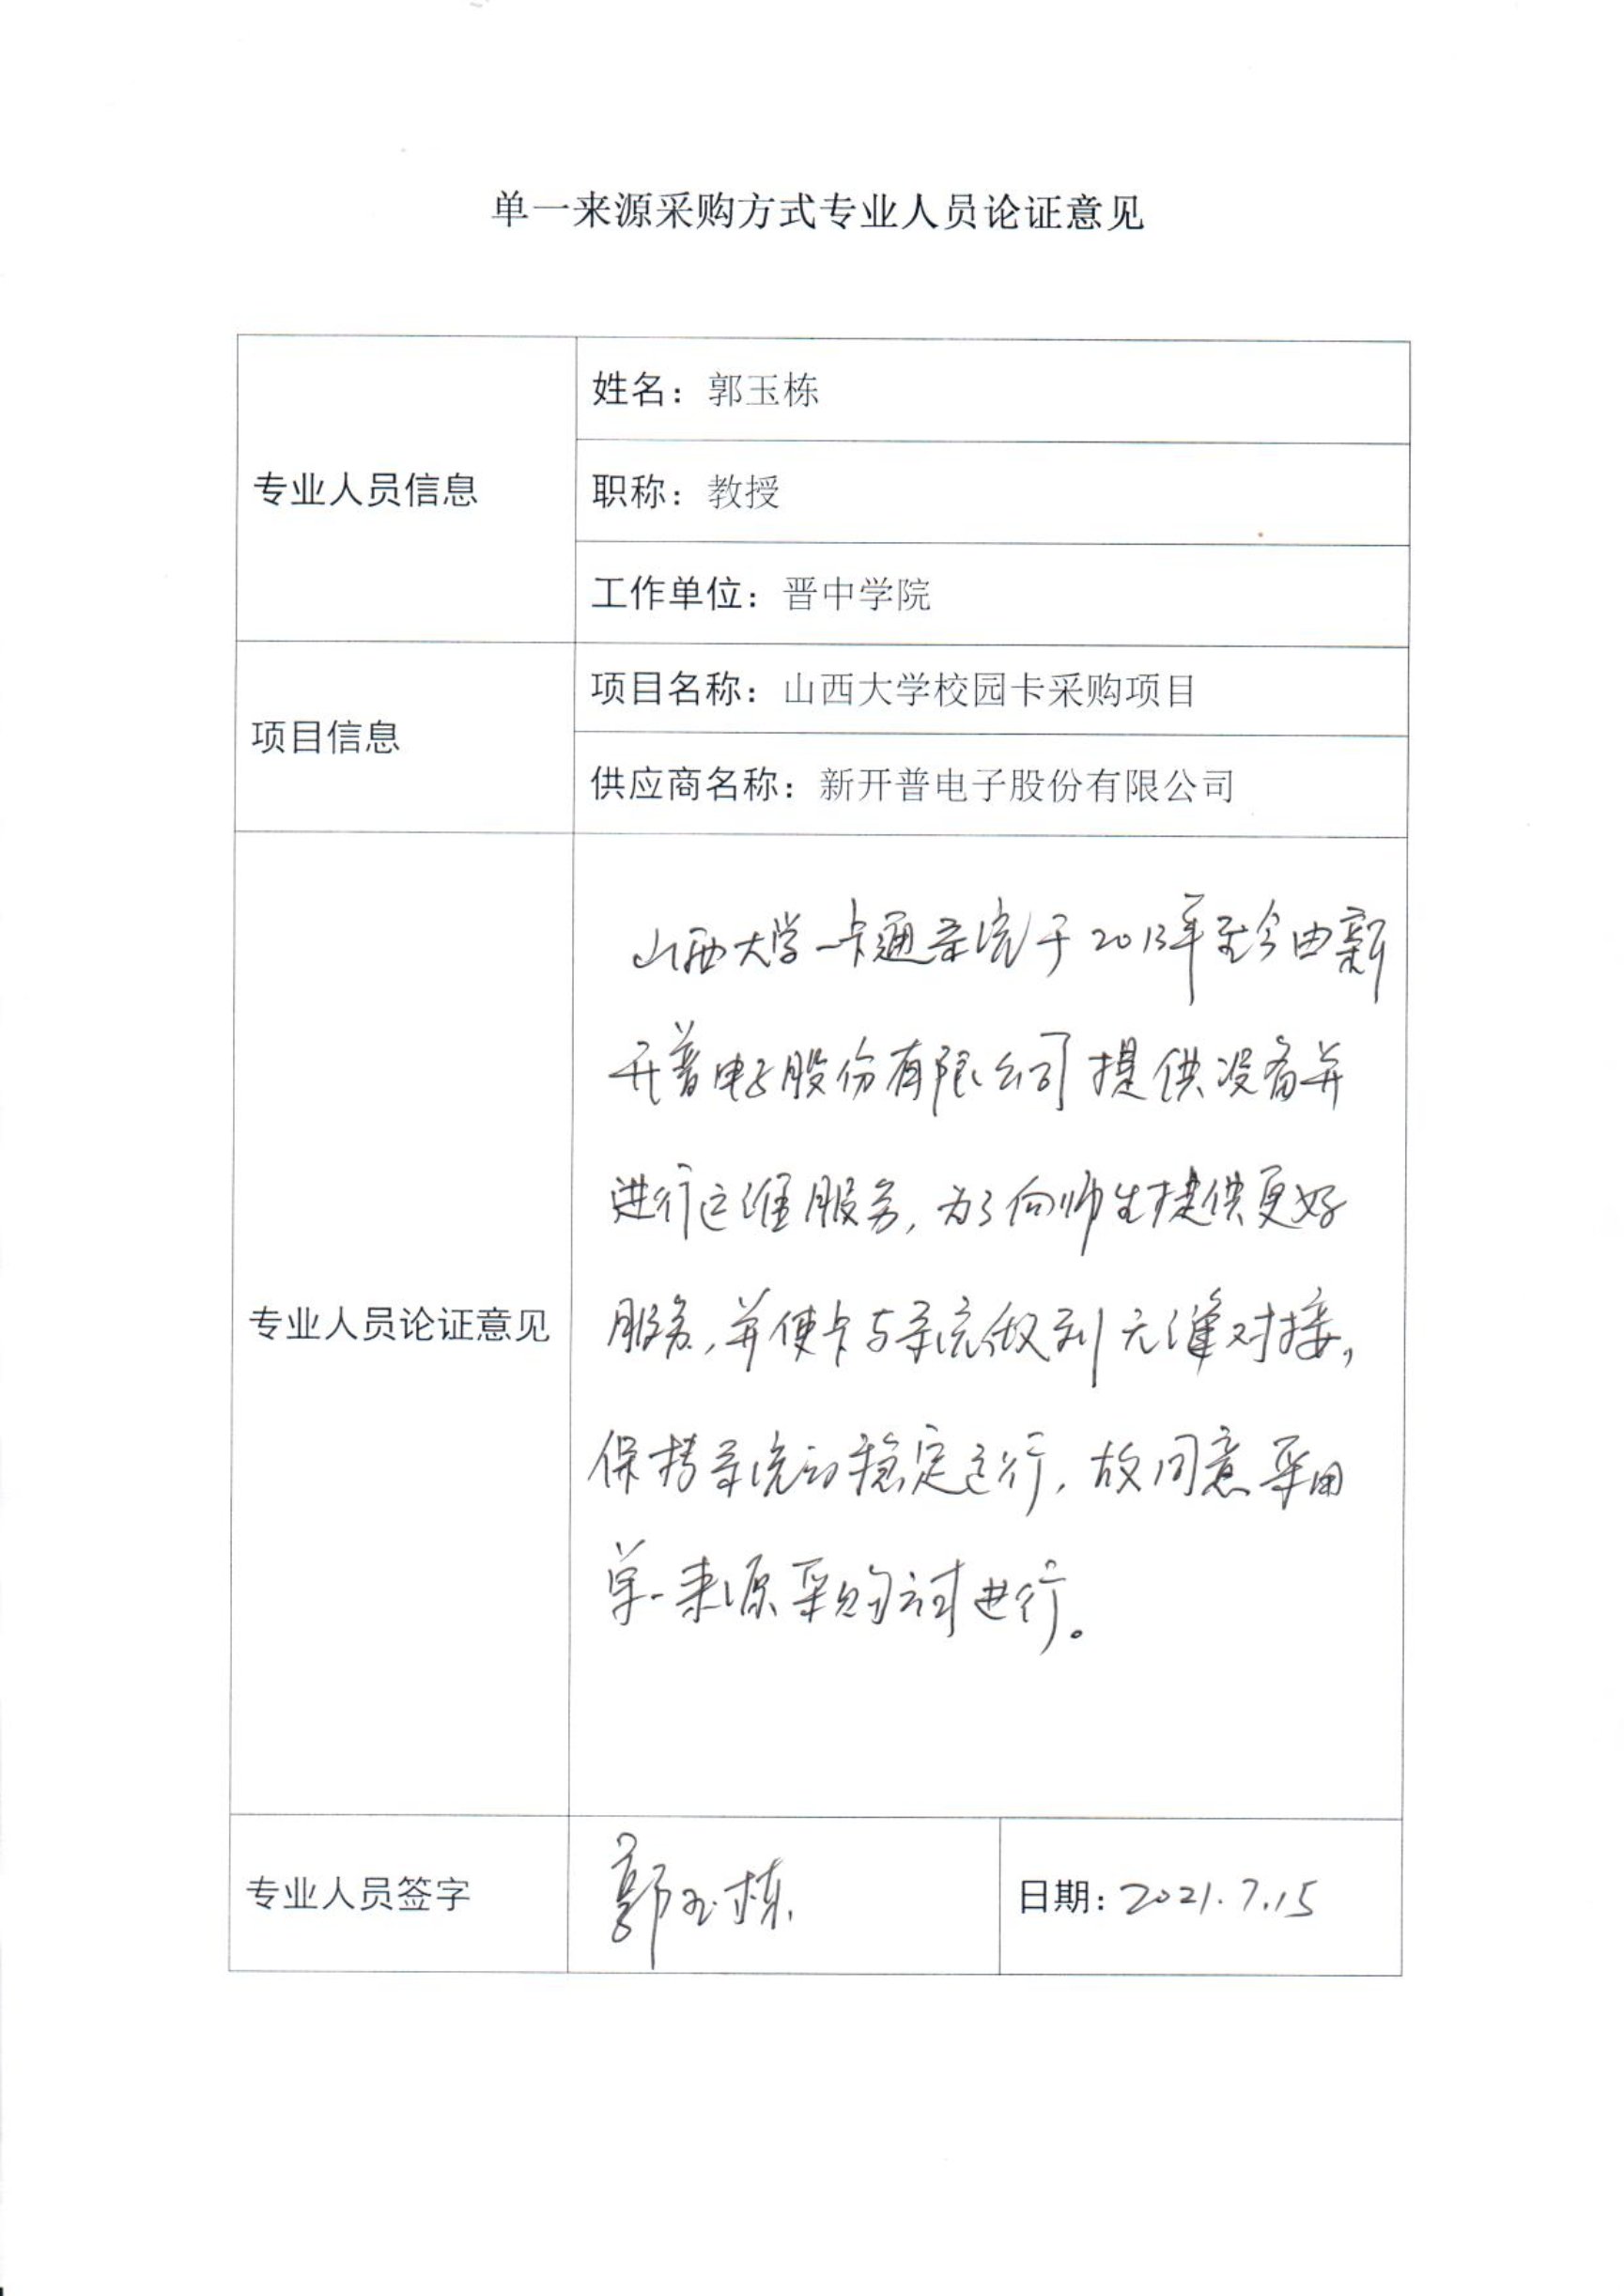 单一来源采购方式专业人员论证意见
专业人员信息
姓名：郭玉栋
职称：教授
工作单位：晋中学院
项目信息
项目名称：山西大学校园卡采购项目
供应商名称：新开普电子股份有限公司
专业人员论证意见
山西大学一卡通系统于2013年至今由新
开普电子股份有限公司提供设备并
进行运维服务,为了向师生提供更好
服务,并使卡与系统做到无缝对接,
保持系统的稳定运行,故同意采用
单一来源采购方式进行。
专业人员签字
郭玉栋
日期：2021.7.15